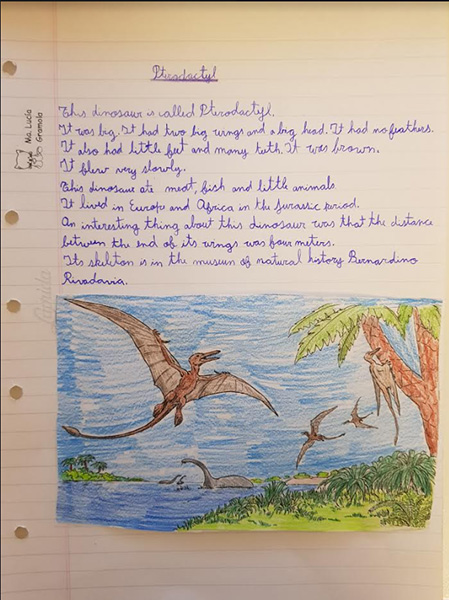 Pterodactyl
Ma. Lucia
Gramola
This dinosaur is called Pterodactyl.
It was big. It had two big wings and a big head. It had no feathers.
It also had little feet and many teeth. It was brown.
It flew very slowly.
This dinosaur ate meat, fish and little animals
It lived in Europ and Africa in the jurassic period.
An interesting thing about this dinosaur was that the distance
between the end of its wings was four meters.
Its skeliton is in the museun of natural history Bernardino
Rivadavia.